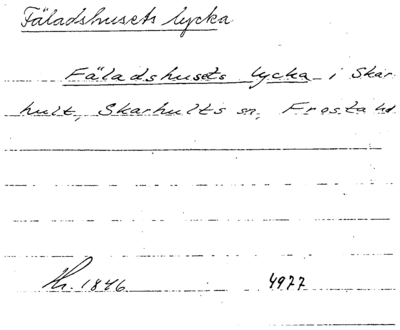 Fäladshusets lycka
Fäladshusets lycka i Skar-
hult, Skarhults sn, Frosta hd
Hr. 1846 4977